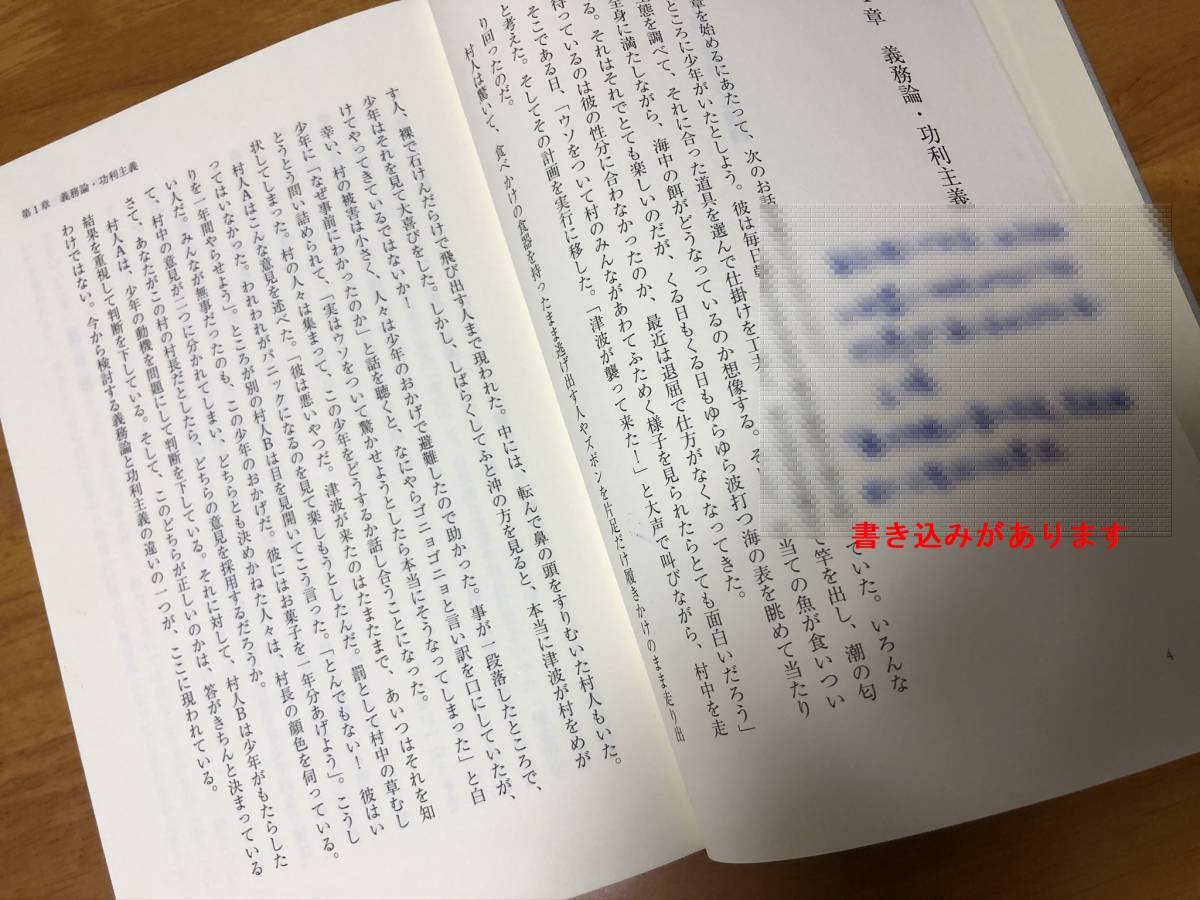 1章 義務論・功利主義
章を始めるにあたって、次のお話
ところに少年がいたとしよう。彼は毎日朝
でいた。いろんな
態を調べて、それに合った道具を選んで仕掛けを工夫
で竿を出し、潮の匂
全身に満たしながら、海中の餌がどうなっているのか想像する。そ
当ての魚が食いつい
る。それはそれでとても楽しいのだが、くる日もくる日もゆらゆら波打つ海の表を眺めて当たり
持っているのは彼の性分に合わなかったのか、最近は退屈で仕方がなくなってきた。
そこである日、「ウソをついて村のみんながあわてふためく様子を見られたらとても面白いだろう」
と考えた。そしてその計画を実行に移した。「津波が襲って来た!」と大声で叫びながら、村中を走
り回ったのだ。
村人は驚いて、食べかけの食器を持ったまま逃げ出す人やズボンを片足だけ履きかけのまま走り出
4
書き込みがあります
す人、裸で石けんだらけで飛び出す人まで現われた。中には、転んで鼻の頭をすりむいた村人もいた。
少年はそれを見て大喜びをした。しかし、しばらくしてふと沖の方を見ると、本当に津波が村をめが
けてやってきているではないか!
幸い、村の被害は小さく、人々は少年のおかげで避難したので助かった。事が一段落したところで、
少年に「なぜ事前にわかったのか」と話を聴くと、なにやらゴニョゴニョと言い訳を口にしていたが、
とうとう問い詰められて、「実はウソをついて驚かせようとしたら本当にそうなってしまった」と白
状してしまった。村の人々は集まって、この少年をどうするか話し合うことになった。
村人Aはこんな意見を述べた。「彼は悪いやつだ。津波が来たのはたまたまで、あいつはそれを知
ってはいなかった。われわれがパニックになるのを見て楽しもうとしたんだ。罰として村中の草むし
りを一年間やらせよう」。ところが別の村人Bは目を見開いてこう言った。「とんでもない! 彼はい
い人だ。みんなが無事だったのも、この少年のおかげだ。彼にはお菓子を一年分あげよう」。こうし
て、村中の意見が二つに分かれてしまい、どちらとも決めかねた人々は、村長の顔色を伺っている。
さて、あなたがこの村の村長だとしたら、どちらの意見を採用するだろうか。
村人Aは、少年の動機を問題にして判断を下している。それに対して、村人Bは少年がもたらした
結果を重視して判断を下している。そして、このどちらが正しいのかは、答がきちんと決まっている
わけではない。今から検討する義務論と功利主義の違いの一つが、ここに現われている。
第1章 義務論・功利主義